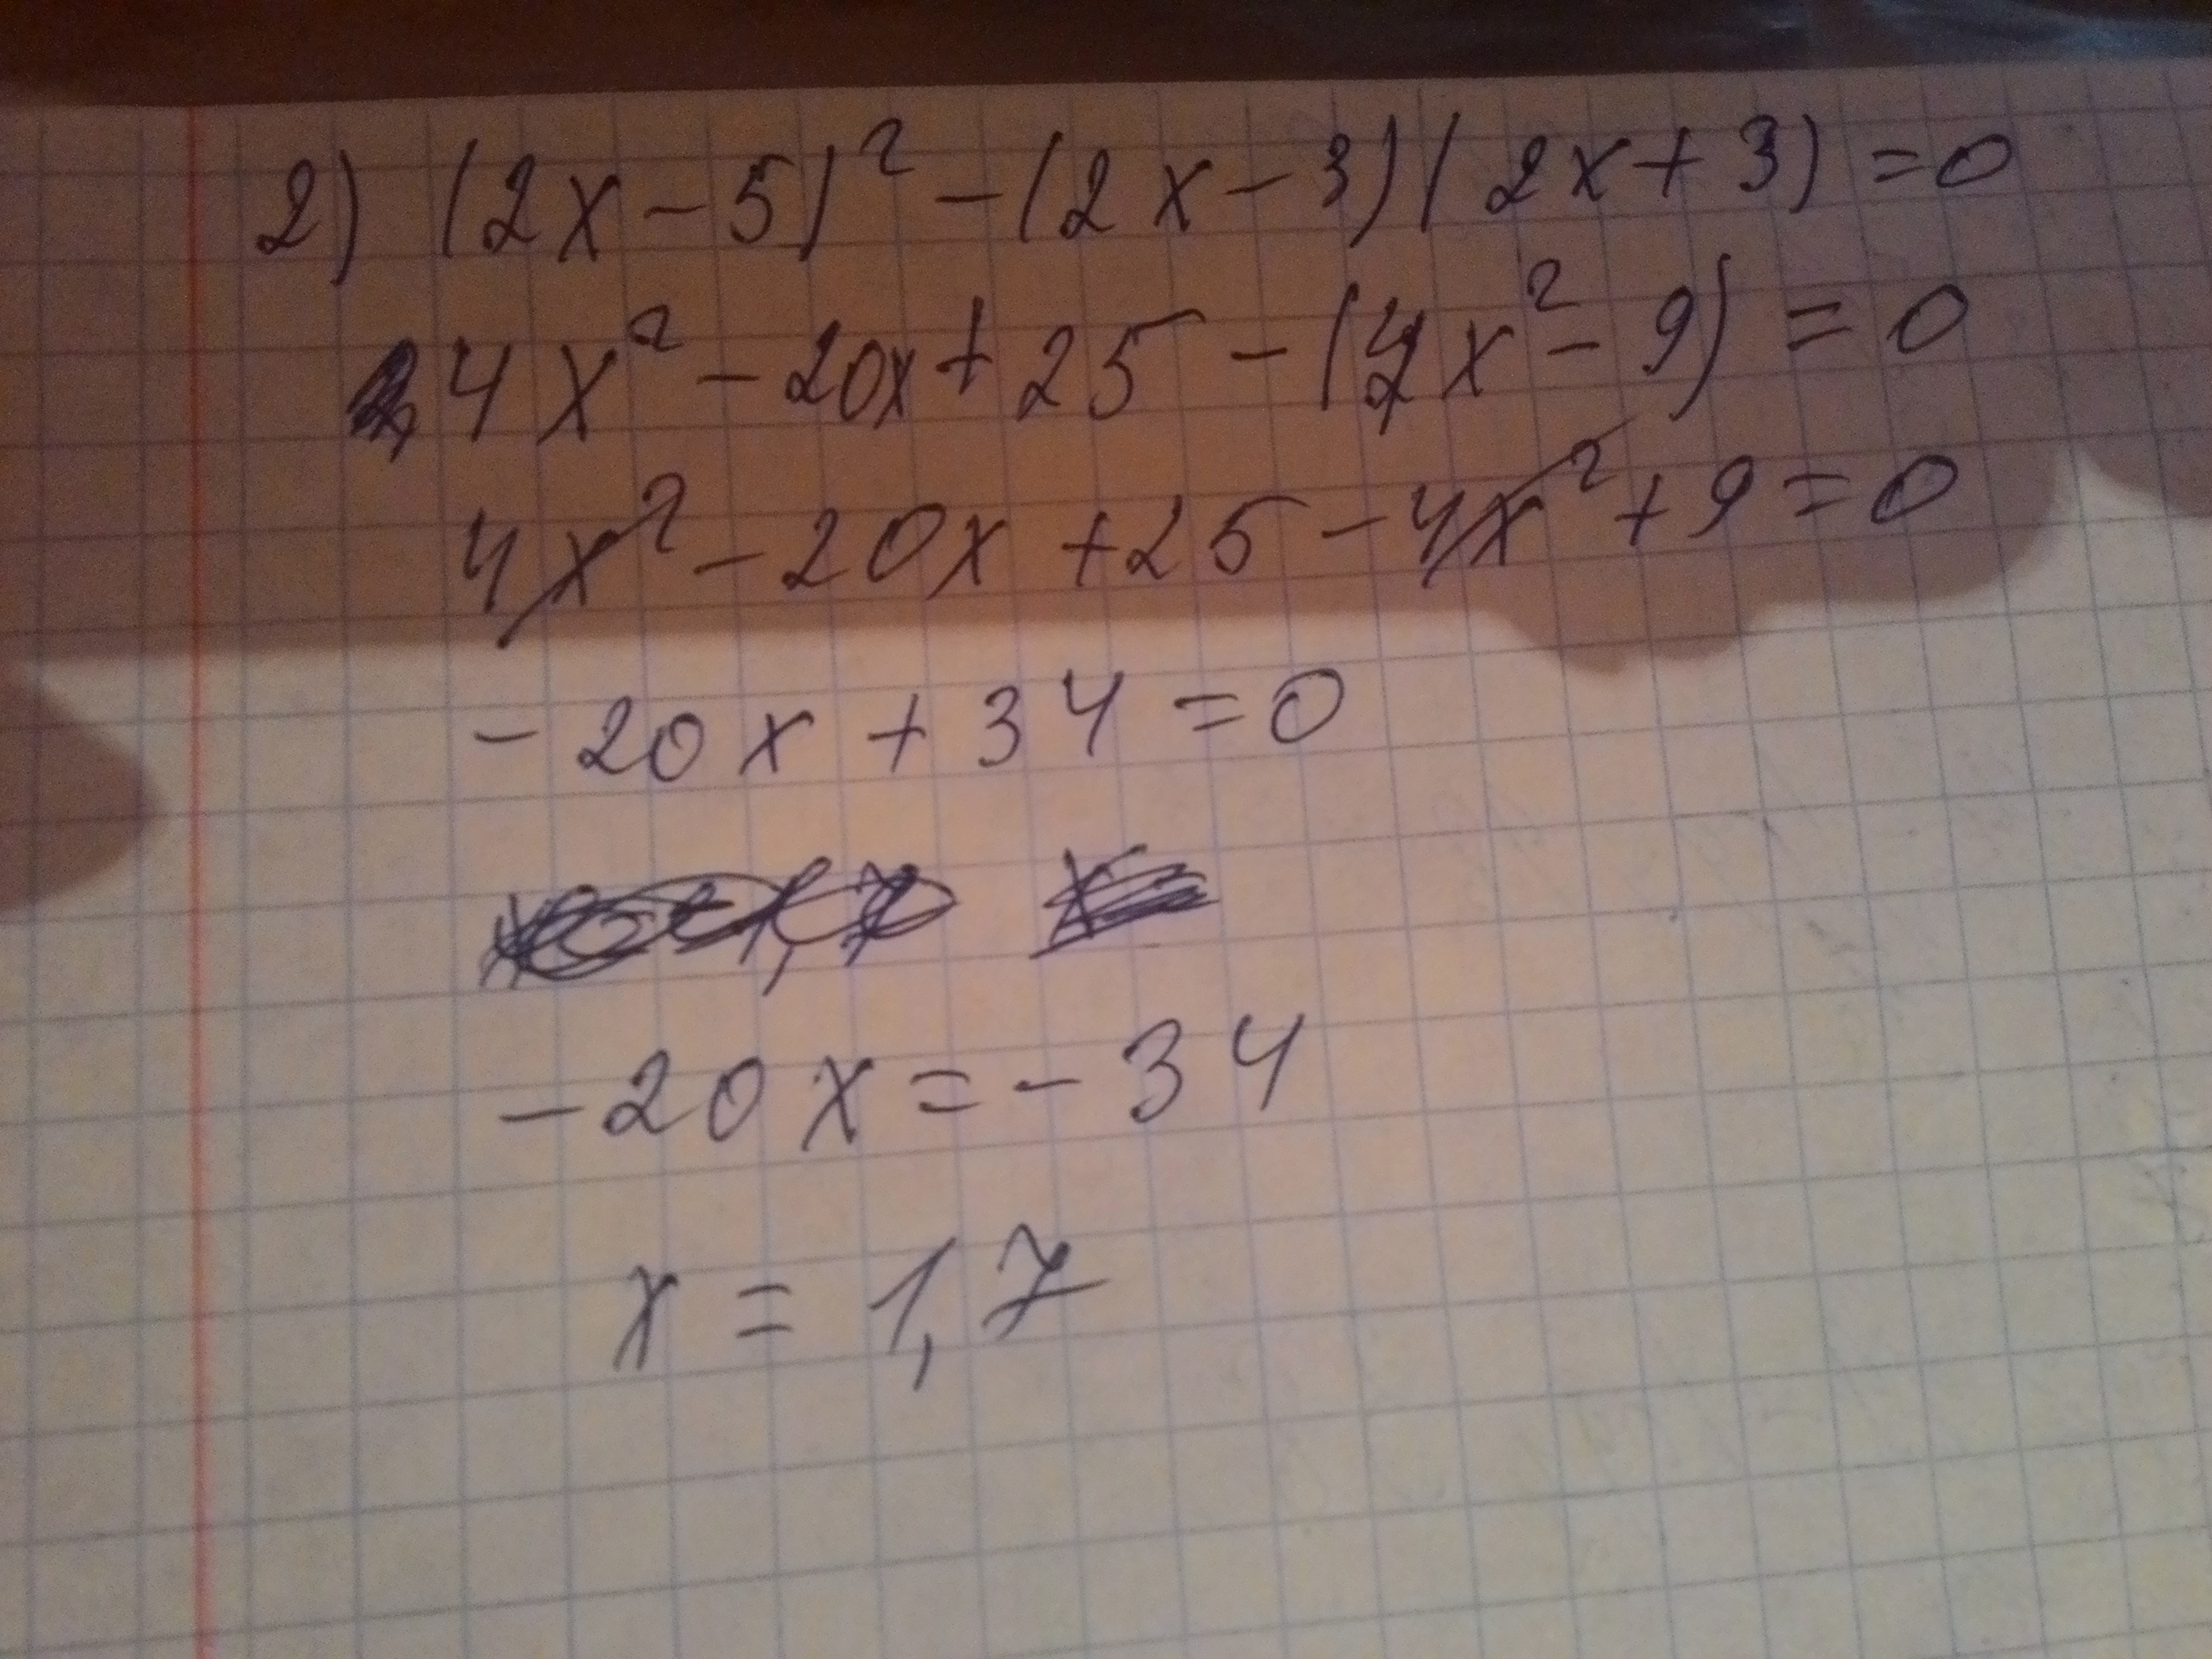 2) (2x-5)² -(2x-3)(2x+3)=0
4x² -20x+25 -(4x²-9)=0
4x² -20x+25-4x²+9=0
-20x+34=0
-20x=-34
x=1,7